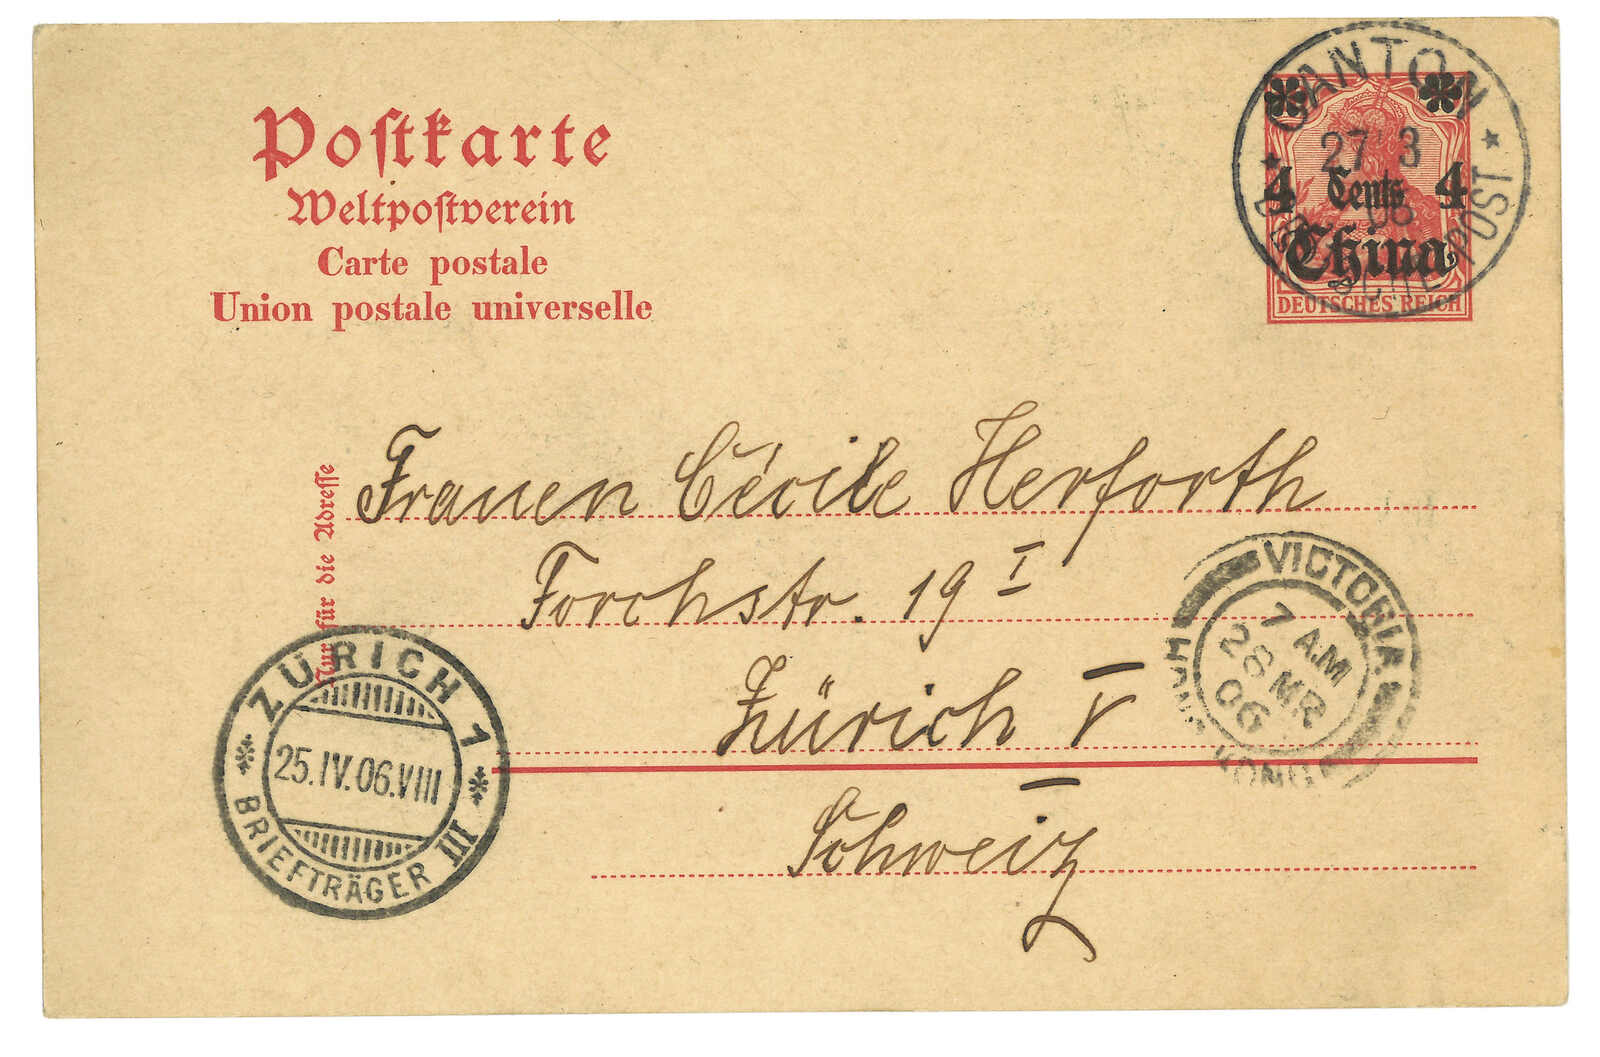 Postkarte
Weltpostverein
Carte postale
Union postale universelle
CANTON
27 3
06
DEUTSCHE POST
4 Cents 4
China
DEUTSCHES REICH
Nur für die Adresse
Frauen Cécile Herforth
Forchstr. 19 I
Zürich V
Schweiz
VICTORIA
7 A.M
28 MR
06
HONG KONG
ZÜRICH 1
25.IV.06.VIII
BRIEFTRÄGER III